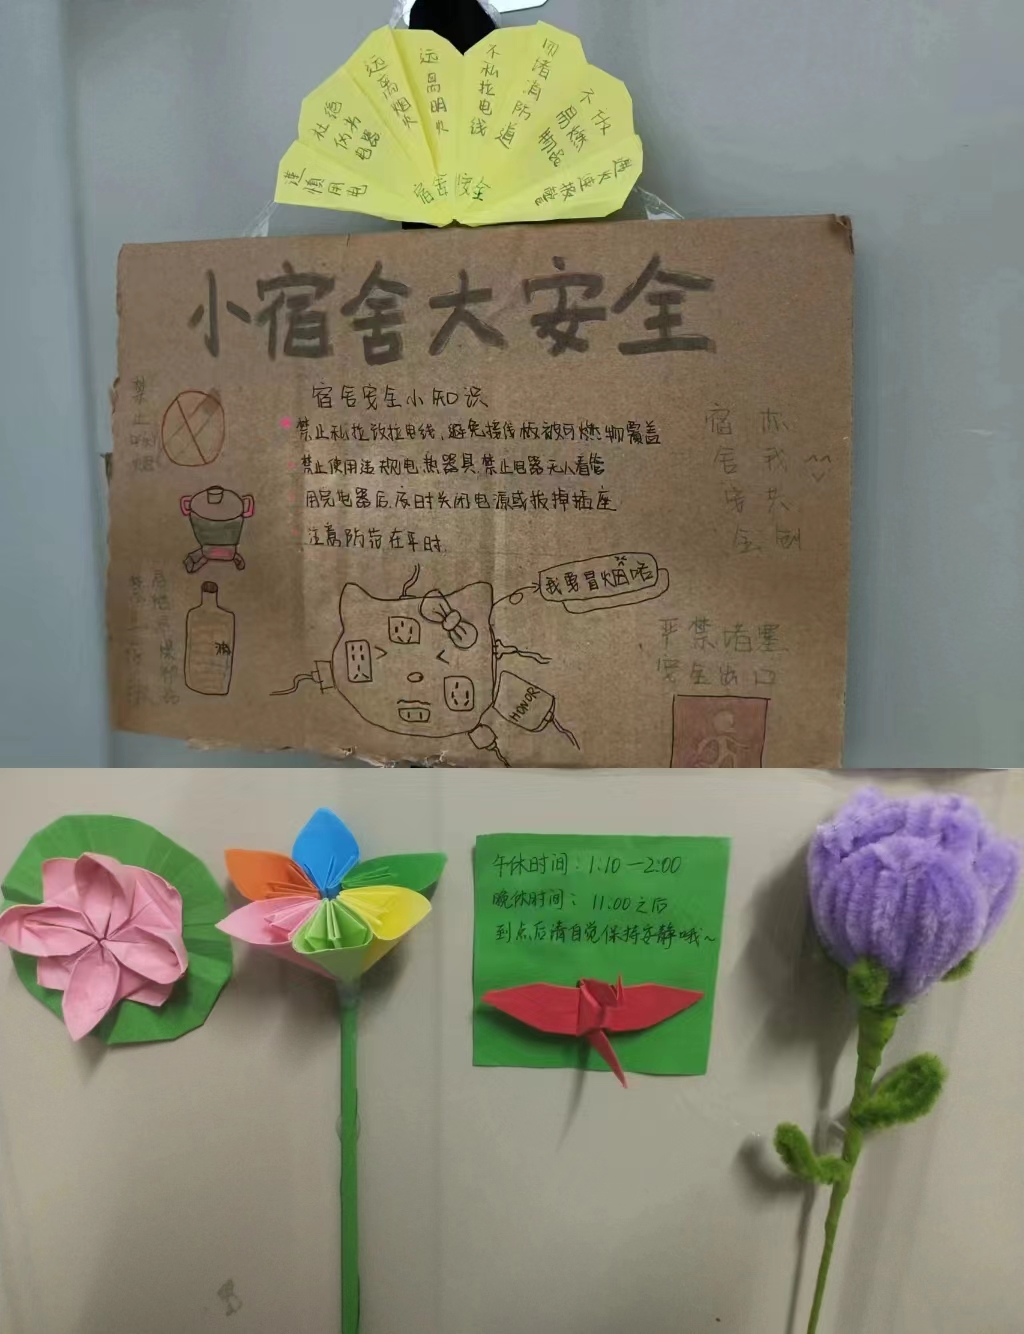 谨慎用电
杜绝伪劣电器
远离烟火
远离明火
不私拉电线
宿舍安全
小宿舍大安全
宿舍安全小知识
禁止私拉改拉电线,避免接线板被可燃物覆盖
禁止使用违规电热器具,禁止电器无人看管
用完电器后,及时关闭电源或拔掉插座
注意防范在平时.
禁止吸烟
酒
我要冒烟咯
HONOR
宿舍安全
严禁堵塞
安全出口
午休时间:1:10—2:00
晚休时间: 11:00之后
到点后请自觉保持安静哦~